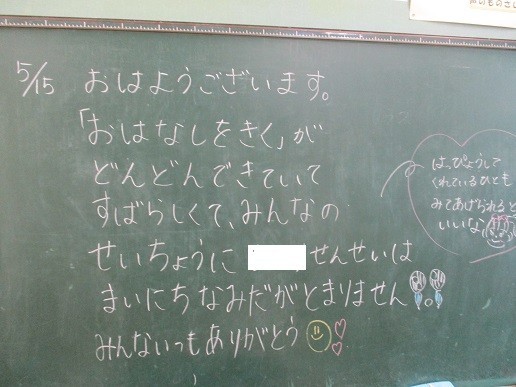 5/15 おはようございます。
「おはなしをきく」が
どんどんできていて
すばらしくて、みんなの
せいちょうに せんせいは
まいにちなみだがとまりません
みんないつもありがとう
はっぴょうして
くれているひとも
みてあげられると
いいな